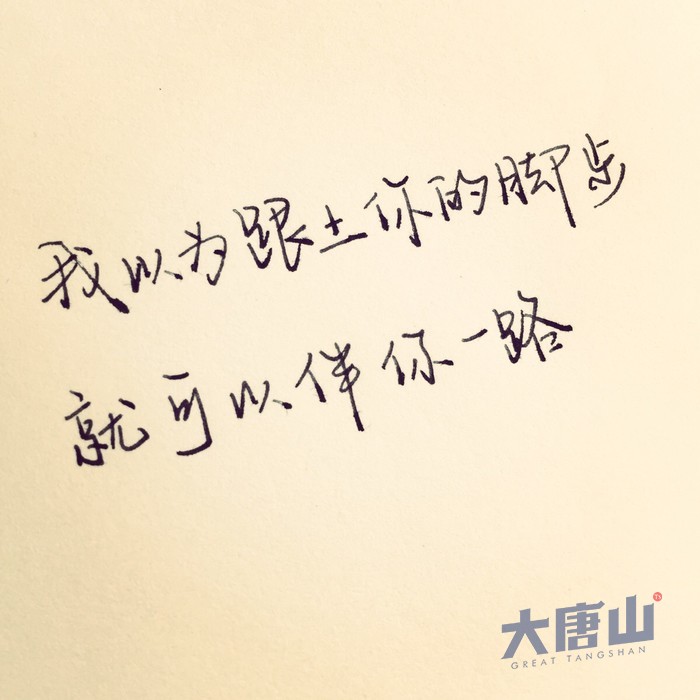 我以为跟上你的脚步
就可以伴你一路
大唐山
GREAT TANGSHAN